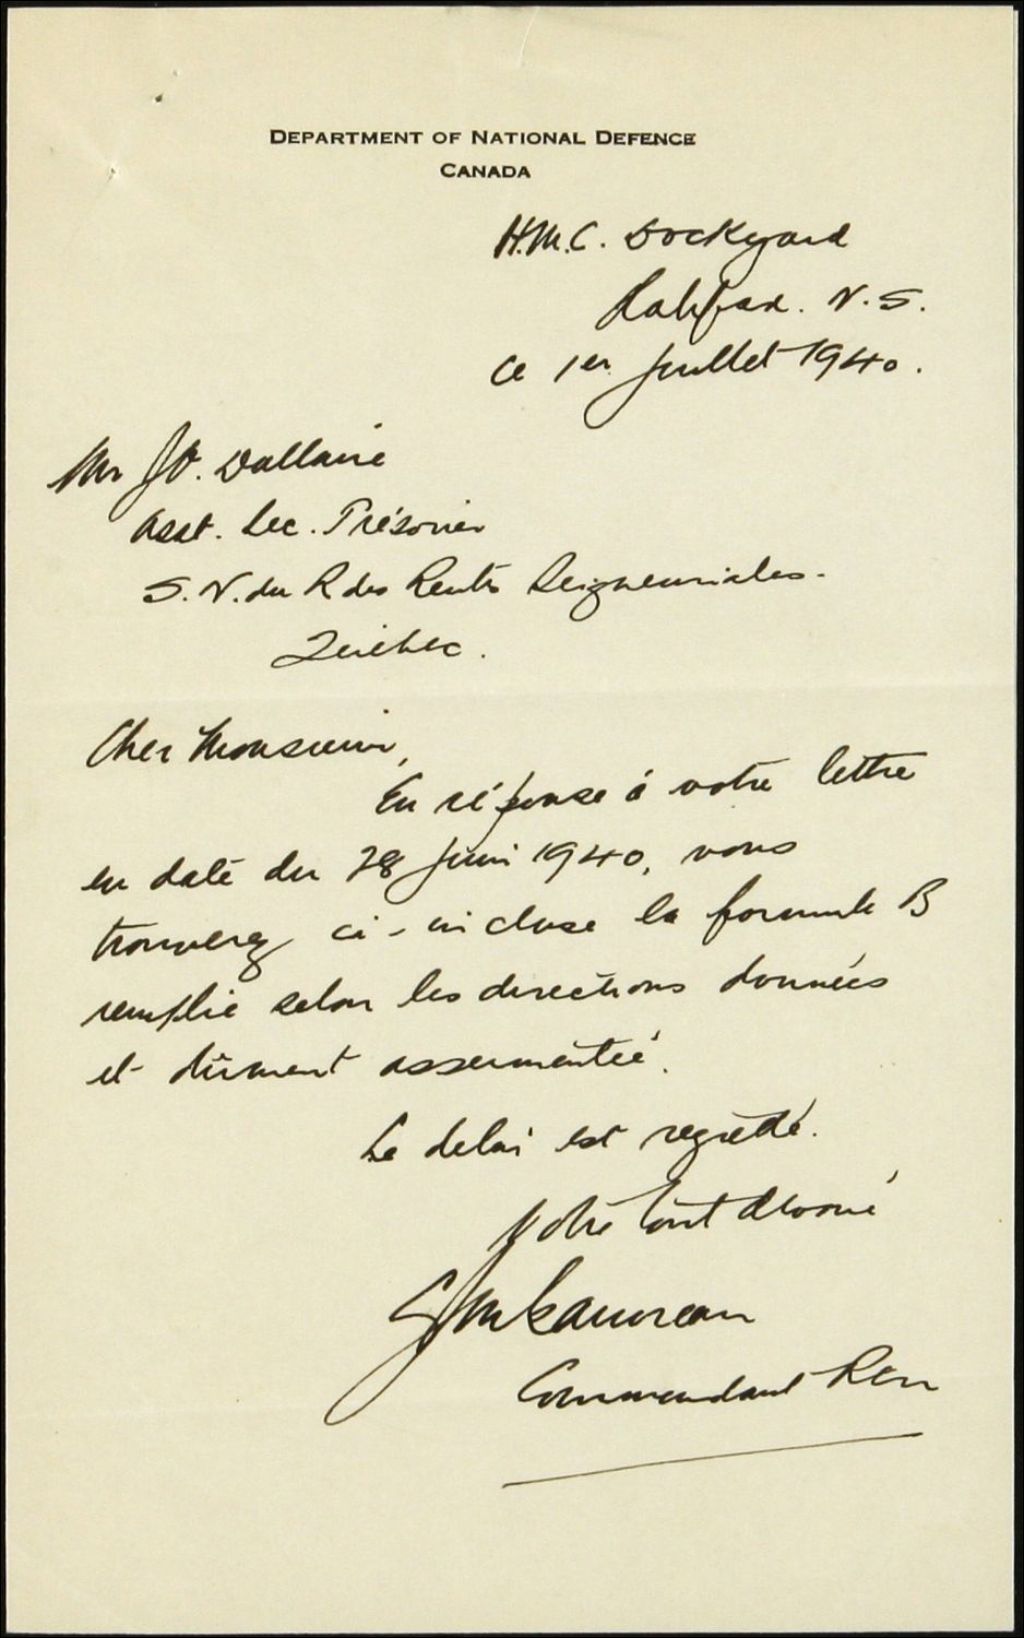 DEPARTMENT OF NATIONAL DEFENCE
CANADA
H.M.C. Dockyard
Halifax. N.S.
ce 1er Juillet 1940.
Mr J.O. Dallaire
Asst. Sec. Trésorier
S.N. du R des Rentes Seigneuriales.
Québec.
Cher Monsieur,
En réponse à votre lettre
en date du 28 Juin 1940, vous
trouverez ci-incluse la formule B
remplie selon les directions données
et dûment assermentée.
Le délai est regretté.
Votre tout dévoué
Commandant RCN